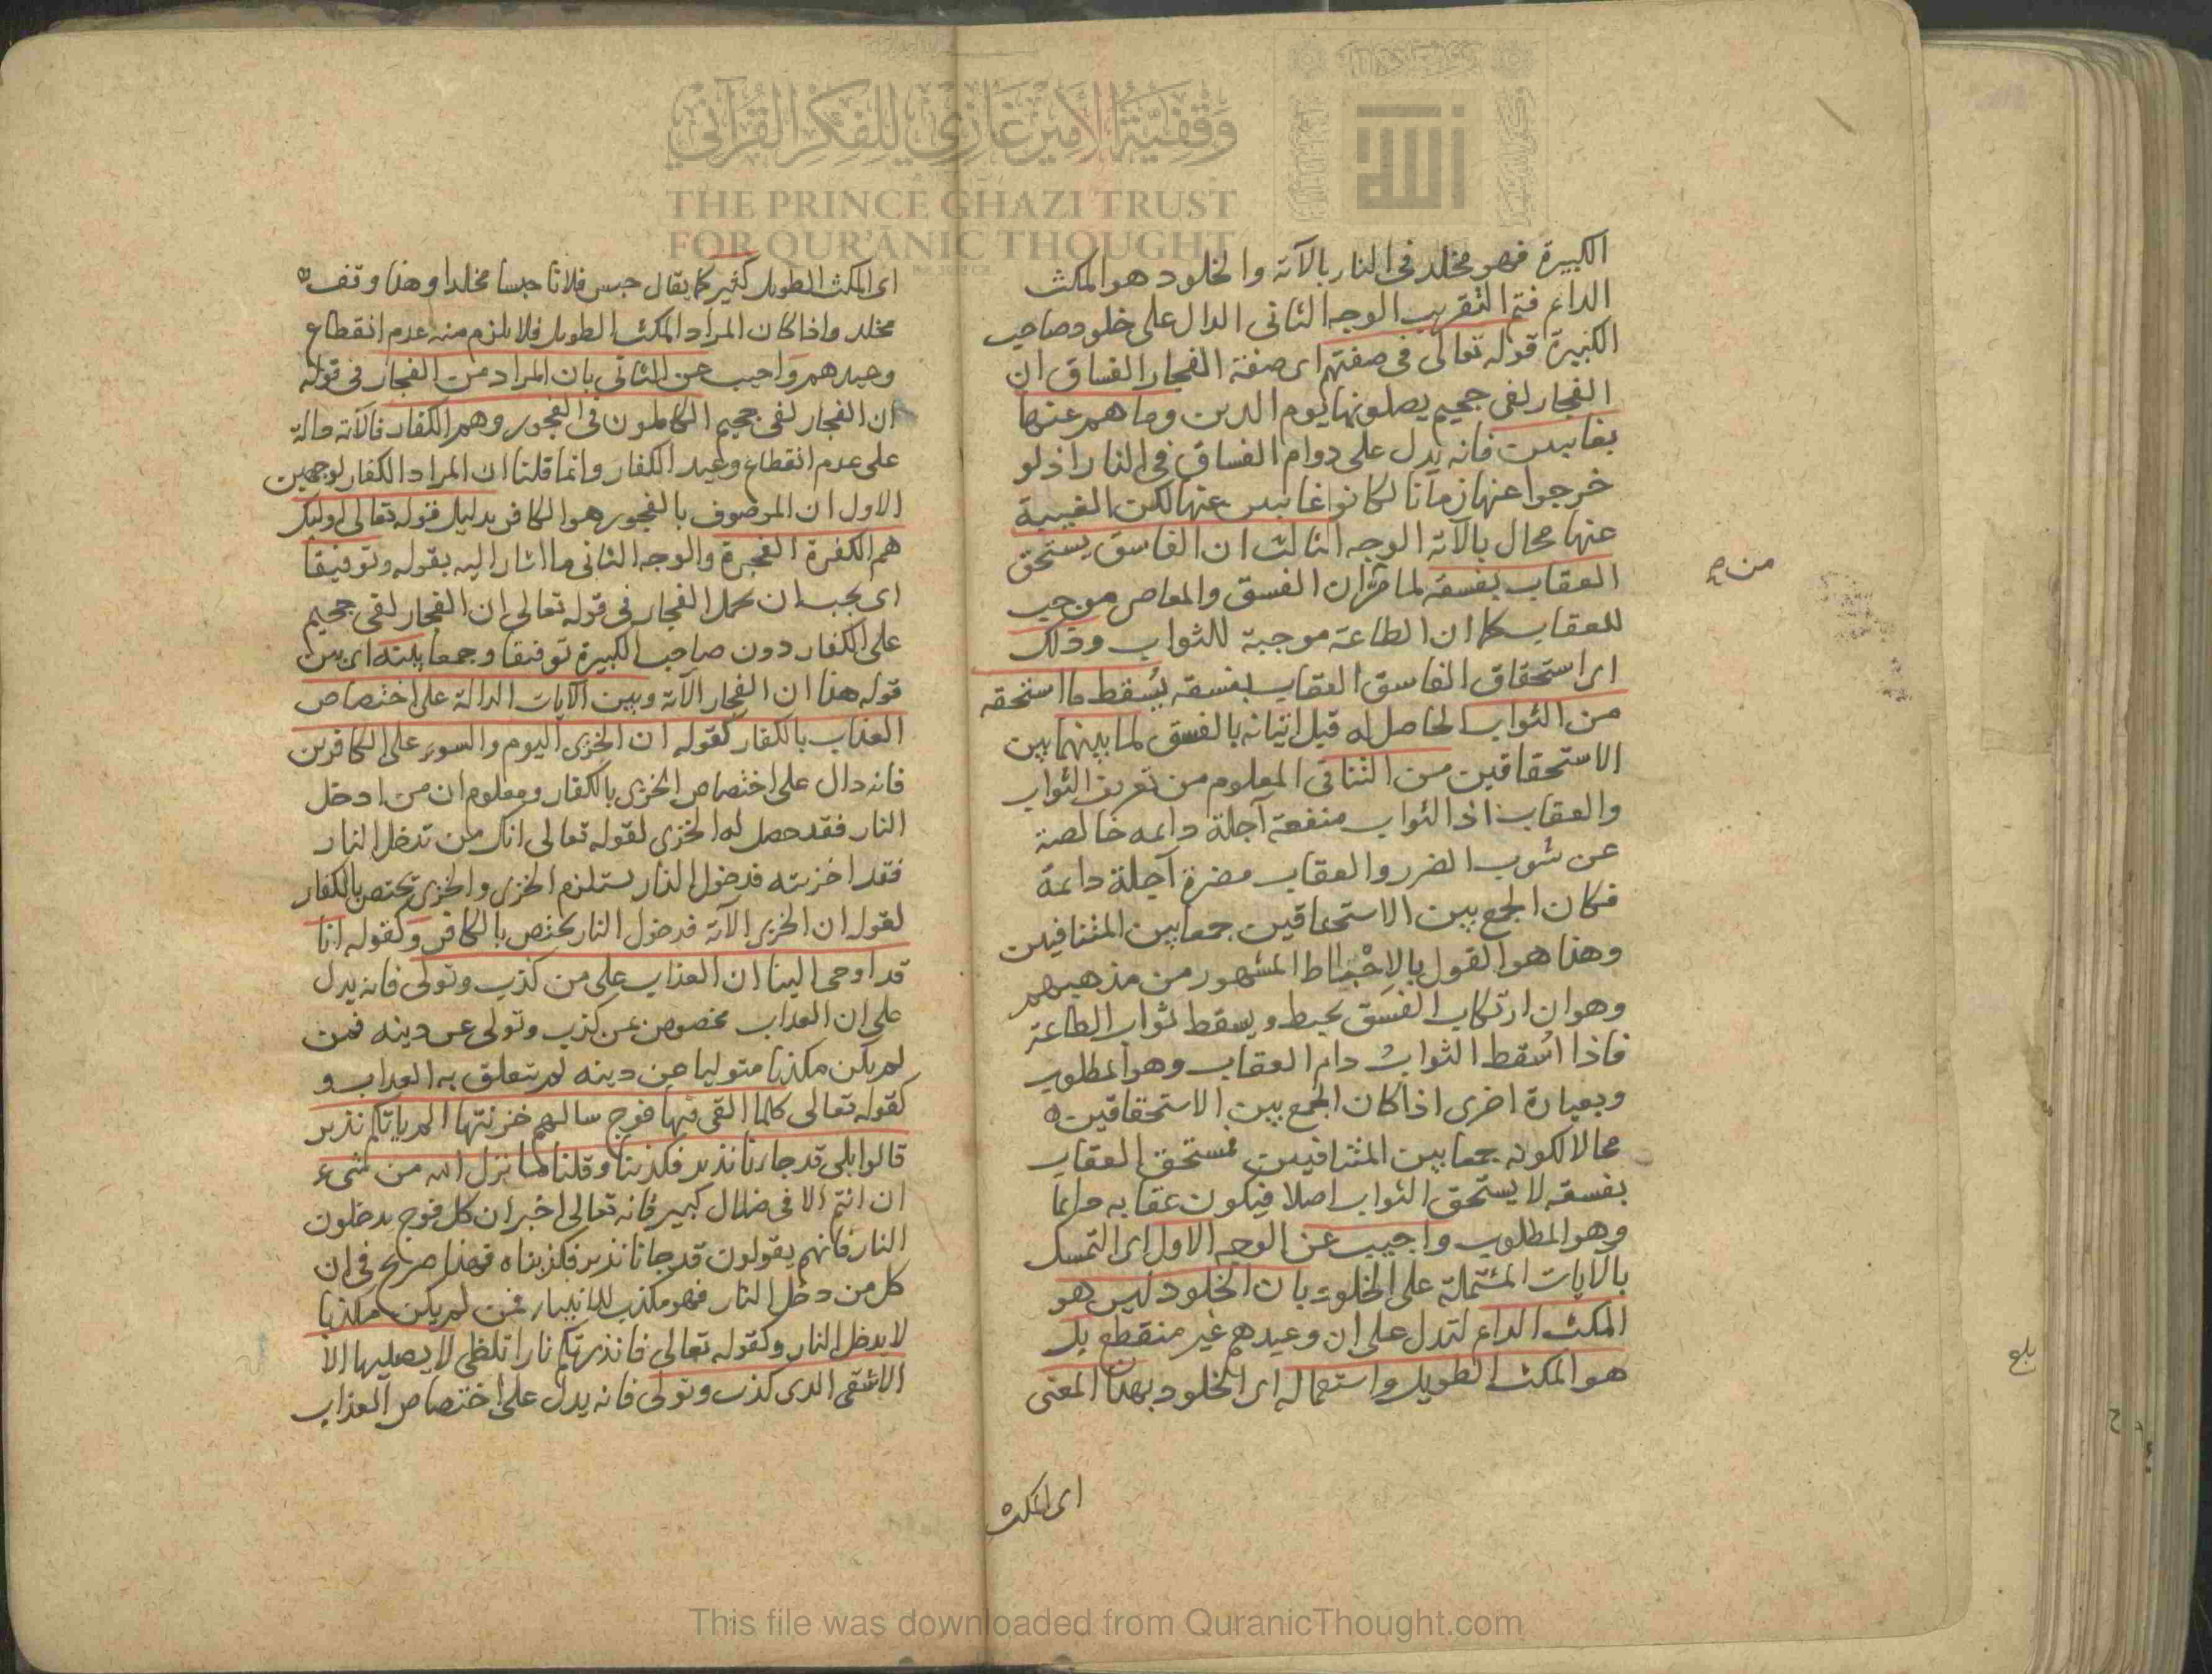 وقفية الأمير غازي للفكر القرآني
THE PRINCE GHAZI TRUST
FOR QUR'ĀNIC THOUGHT
الله
الكبيرة فهو مخلد في النار بالآته والخلود هو المكث
الدائم فتم التقريب الوجه الثاني الدال على خلود صاحب
الكبيرة قوله تعالى في صفتهم اى صفة الفجار الفساق ان
الفجار لفي جحيم يصلونها يوم الدين وما هم عنها
بغايبين فانه يدل على دوام الفساق في النار اذ لو
خرجوا عنها زمانا لكانوا غايبين عنها لكن الغيبة
عنها محال بالآته الوجه الثالث ان الفاسق يستحق
العقاب بفسقه لما مر ان الفسق والمعاصى موجب
للعقاب كما ان الطاعة موجبة للثواب وذلك
اى استحقاق الفاسق العقاب بفسقه يُسقط ما استحقه
من الثواب الحاصل له قبل اتيانه بالفسق لما بينهما بين
الاستحقاقين من التنافي المعلوم من تعريف الثواب
والعقاب اذ الثواب منفعة آجلة دائمه خالصة
عن شوب الضرر والعقاب مضرة آجلة دائمة
فكان الجمع بين الاستحقاقين جمعا بين المتنافيين
وهذا هو القول بالإحْبَاط المشهور من مذهبهم
وهو ان ارتكاب الفسق يحبط ويسقط ثواب الطاعة
فاذا اُسقط الثوابُ دام العقاب وهو المطلوب
وبعبارة اخرى اذا كان الجمع بين الاستحقاقين
محالا لكونه جمعا بين المتنافيين فمستحق العقاب
بفسقه لا يستحق الثواب اصلا فيكون عقابه دائما
وهو المطلوب واجيب عن الوجه الاول اى التمسك
بالايات المشتملة على الخلود بان الخلود ليس هو
المكث الدائم لتدل على ان وعيدهم غير منقطع بل
هو المكث الطويل واستعماله اى الخلود بهذا المعنى
اى المكث
من
بلغ
اى المكث الطويل كثير كما يقال حبس فلانا حبسا مخلدا وهذا وقف
مخلد واذا كان المراد المكث الطويل فلا يلزم منه عدم انقطاع
وعيدهم واجيب عن الثاني بان المراد من الفجار في قوله
ان الفجار لفي جحيم الكاملون في الفجور وهم الكفار فالآته دالة
على عدم انقطاع وعيد الكفار وانما قلنا ان المراد الكفار لوجهين
الاول ان الموصوف بالفجور هو الكافر بدليل قوله تعالى اوليك
هم الكفرة الفجرة والوجه الثاني ما اشار اليه بقوله وتوفيقا
اى يجب ان يحمل الفجار في قوله تعالى ان الفجار لفي جحيم
على الكفار دون صاحب الكبيرة توفيقا وجمعا بينه اى بين
قوله هذا ان الفجار الآته وبين الايات الدالة على اختصاص
العذاب بالكفار كقوله ان الخزى اليوم والسوء على الكافرين
فانه دال على اختصاص الخزى بالكفار ومعلوم ان من ادخل
النار فقد حصل له الخزى لقوله تعالى انك من تدخل النار
فقد اخزيته فدخول النار يستلزم الخزى والخزى يختص بالكفار
لقوله ان الخزى الآته فدخول النار يختص بالكافر وكقوله انا
قد اوحى الينا ان العذاب على من كذب وتولى فانه يدل
على ان العذاب مخصوص بمن كذب وتولى عن دينه فمن
لم يكن مكذبا متوليا عن دينه لم يتعلق به العذاب و
كقوله تعالى كلما القى فيها فوج سالهم خزنتها الم ياتكم نذير
قالوا بلى قد جاءنا نذير فكذبنا وقلنا ما نزل الله من شىء
ان انتم الا في ضلال كبير فانه تعالى اخبر ان كل فوج يدخلون
النار فانهم يقولون قد جانا نذير فكذبناه فهذا صريح في ان
كل من دخل النار فهو مكذب للانبياء فمن لم يكن مكذبا
لا يدخل النار وكقوله تعالى فانذرتكم نارا تلظى لا يصليها الا
الاشقى الذى كذب وتولى فانه يدل على اختصاص العذاب
This file was downloaded from QuranicThought.com